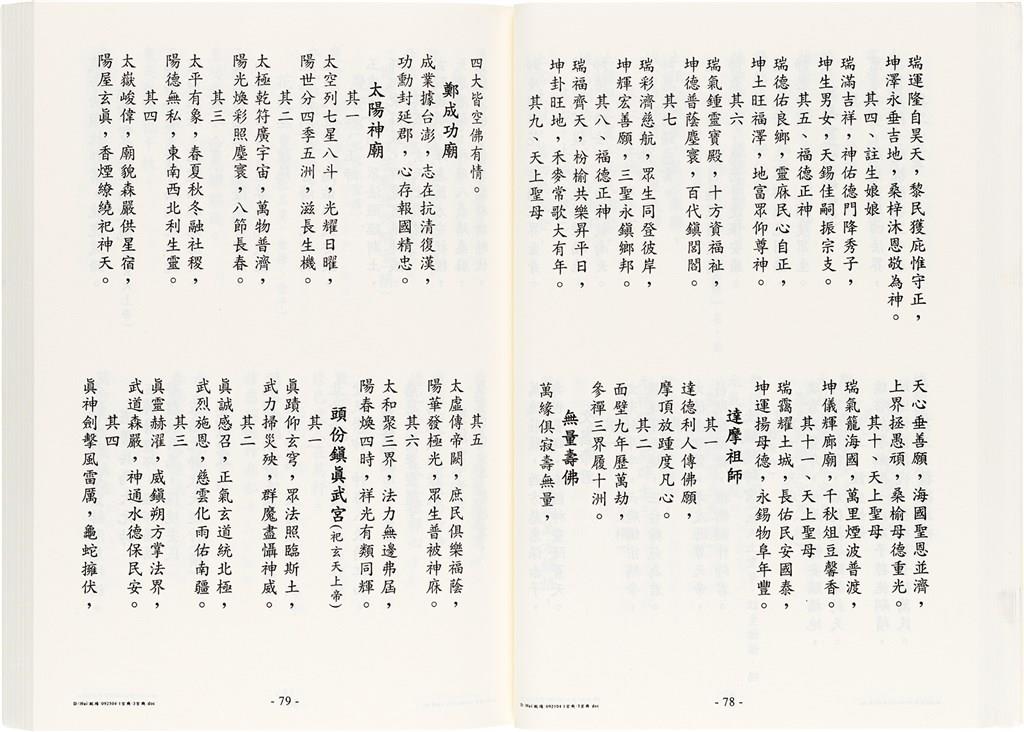 瑞運隆自昊天，黎民獲庇惟守正，
坤澤永垂吉地，桑梓沐恩敬為神。
其四、註生娘娘
瑞滿吉祥，神佑德門降秀子，
坤生男女，天錫佳嗣振宗支。
其五、福德正神
瑞德佑良鄉，靈庥民心自正，
坤土旺福澤，地富眾仰尊神。
其六
瑞氣鍾靈寶殿，十方資福祉，
坤德普蔭塵寰，百代鎮閭閻。
其七
瑞彩濟慈航，眾生同登彼岸，
坤輝宏善願，三聖永鎮鄉邦。
其八、福德正神
瑞福齊天，枌榆共樂昇平日，
坤卦旺地，禾麥常歌大有年。
其九、天上聖母
天心垂善願，海國聖恩並濟，
上界拯愚頑，桑榆母德重光。
其十、天上聖母
瑞氣籠海國，萬里煙波普渡，
坤儀輝廊廟，千秋俎豆馨香。
其十一、天上聖母
瑞靄耀土城，長佑民安國泰，
坤運揚母德，永錫物阜年豐。
達摩祖師
其一
達德利人傳佛願，
摩頂放踵度凡心。
其二
面壁九年歷萬劫，
參禪三界履十洲。
無量壽佛
萬緣俱寂壽無量，
- 78 -
四大皆空佛有情。
鄭成功廟
成業據台澎，志在抗清復漢，
功勳封延郡，心存報國精忠。
太陽神廟
其一
太空列七星八斗，光耀日曜，
陽世分四季五洲，滋長生機。
其二
太極乾符廣宇宙，萬物普濟，
陽光煥彩照塵寰，八節長春。
其三
太平有象，春夏秋冬融社稷，
陽德無私，東南西北利生靈。
其四
太嶽峻偉，廟貌森嚴供星宿，
陽屋玄眞，香煙繚繞祀神天。
其五
太虛傳帝闕，庶民俱樂福蔭，
陽華發極光，眾生普被神庥。
其六
太和聚三界，法力無邊弗屆，
陽春煥四時，祥光有類同輝。
頭份鎮眞武宮(祀玄天上帝)
其一
眞蹟仰玄穹，眾法照臨斯土，
武力掃災殃，群魔盡懾神威。
其二
眞誠感召，正氣玄道統北極，
武烈施恩，慈雲化雨佑南疆。
其三
眞靈赫濯，威鎮朔方掌法界，
武道森嚴，神通水德保民安。
其四
眞神劍擊風雷厲，龜蛇擁伏，
- 79 -